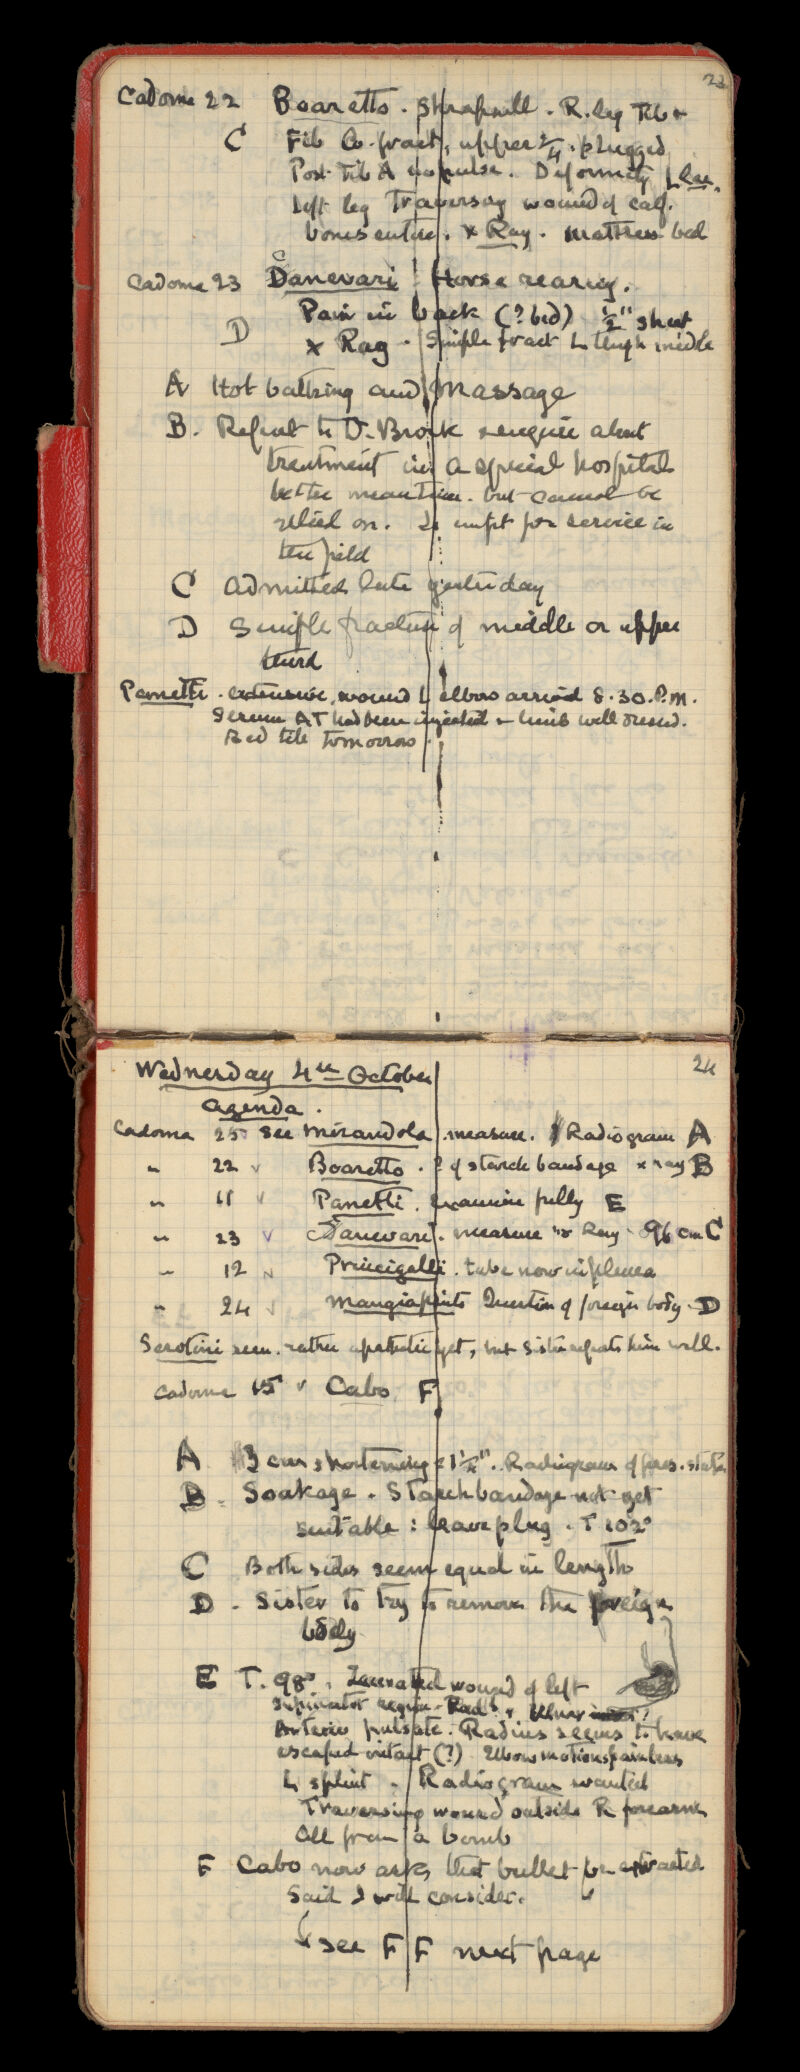 23
Cadorna 22 Boaretto. Shrapnell. R. leg Tib +
C Fib Co. fract, upper ¼. plugged
Post Tib A no pulse. Deformity
Left leg Traversay wound of calf.
bones entire. X Ray. Mattress bed
Cadorna 23 Danevari Horse rearing.
Pain in back (? bed) ½" short
D X Ray. Simple fract L thigh middle
A Hot bathing and massage
B. Refent to D. Brock enquire about
treatment in a special hospital
better meantime. but cannot be
relied on. Is unfit for service in
the field
C Admitted late yesterday
D Simple fracture of middle or upper
third
Panetti. extensive wound L elbow arrived 8.30. P.M.
Serum AT had been injected + limb well dressed.
Bed till tomorrow.
24
Wednesday 4th October
Agenda.
Cadorna 25 See Mirandola. measure. Radiogram A
" 22 v Boaretto. ? of starch bandage X ray B
" 11 v Panetti. Examine fully E
" 23 v Danevari. measure X Ray 96 cm C
" 12 Principalli. tube now in pleura
" 24 v Mangiapinto Question of foreign body. D
Serotini seen. rather apathetic yet, but Sister reports him well.
Cadorna 15 v Cabo F
A 3 cm shortening = 1¼". Radiogram of pres. state
B. Soakage. Starch bandage not yet
suitable: leave plug. T 102°
C Both sides seem equal in length
D. Sister to try to remove the foreign
body
E T. 98°. Lacerated wound of left
supinator region. Radl. + Ulnar
Arteries pulsate. Radius seems to have
escaped intact (?) Elbow motions painless
L splint. Radiogram wanted
Traversing wound outside R forearm
All from a bomb
F Cabo now asks that bullet be extracted
Said I will consider.
see F F next page